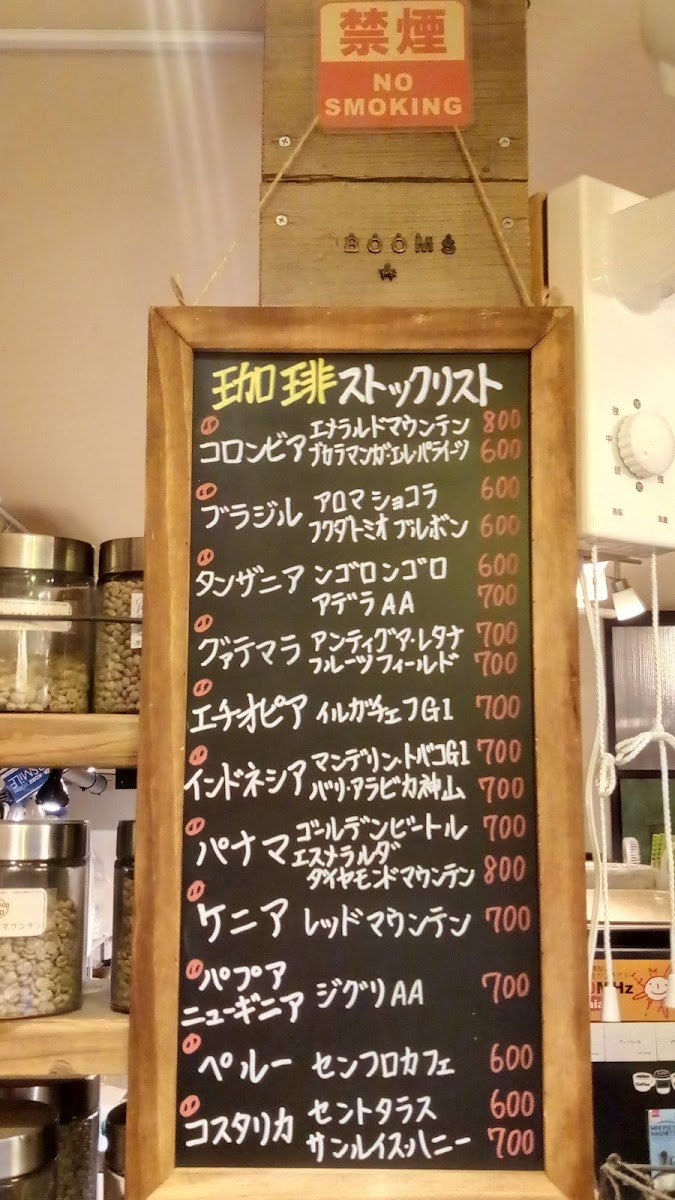 禁煙
NO
SMOKING
BOOMS
珈琲ストックリスト
コロンビア エメラルドマウンテン 800
ブカラマンガ・エル・パライーソ 600
ブラジル アロマ ショコラ 600
フクダトミオ ブルボン 600
タンザニア ンゴロンゴロ 600
アデラAA 700
グァテマラ アンティグア・レタナ 700
フルーツフィールド 700
エチオピア イルガチェフG1 700
インドネシア マンデリン・トバコG1 700
バリ・アラビカ神山 700
パナマ ゴールデンビートル 700
エスメラルダ
ダイヤモンドマウンテン 800
ケニア レッドマウンテン 700
パプア
ニューギニア ジグリAA 700
ペルー センフロカフェ 600
コスタリカ セントタラス 600
サンルイス・ハニー 700
SMILE
マウンテン